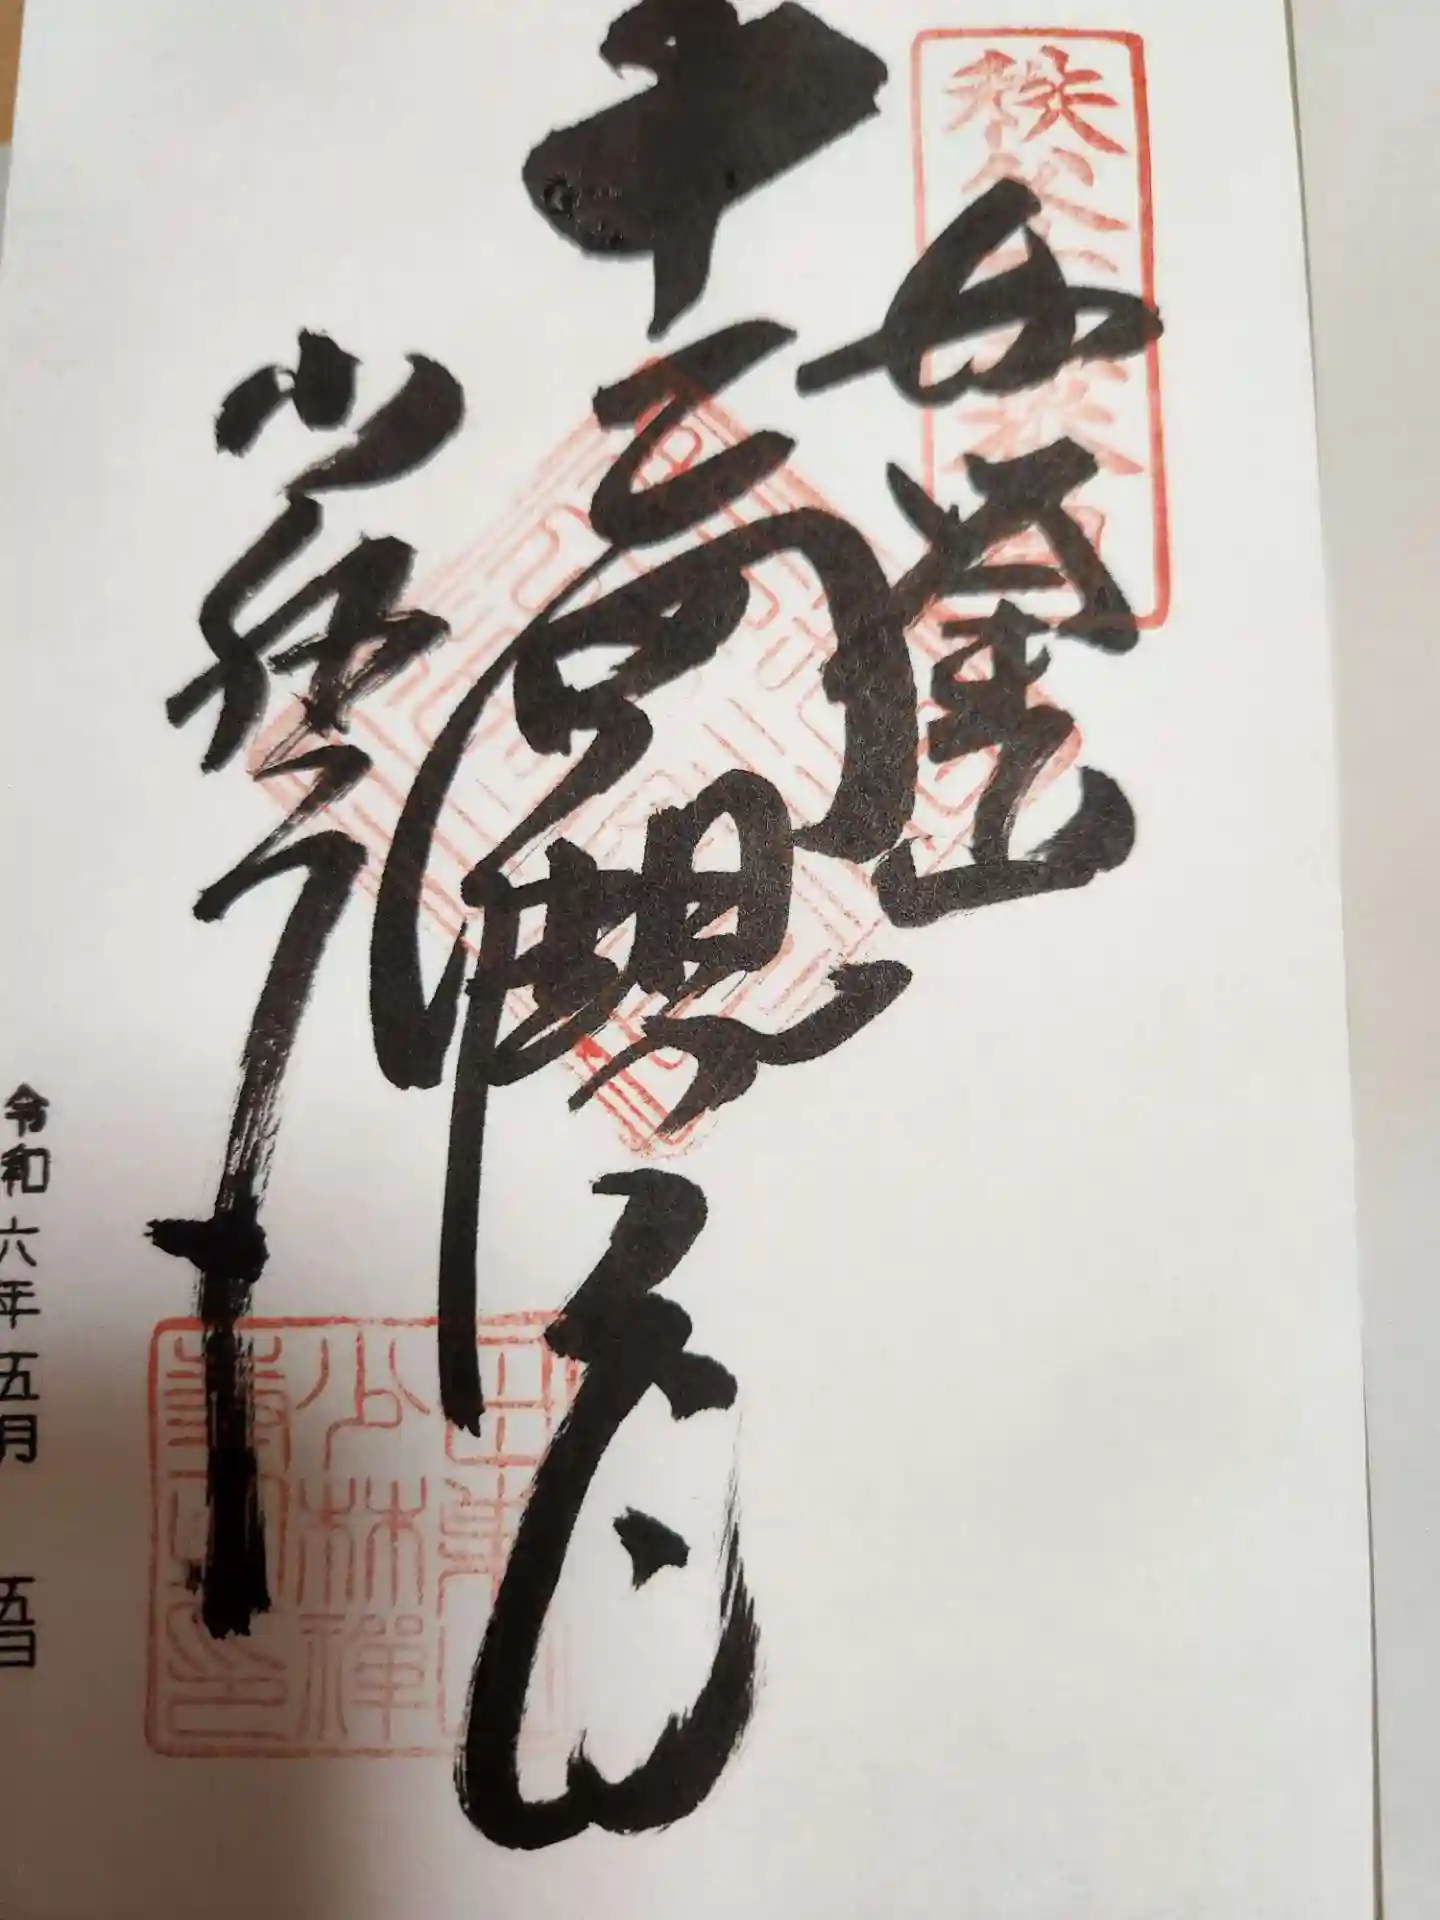 秩父十五番
母巣山
十一面観世音
少林寺
少林禅
令和六年五月 五日